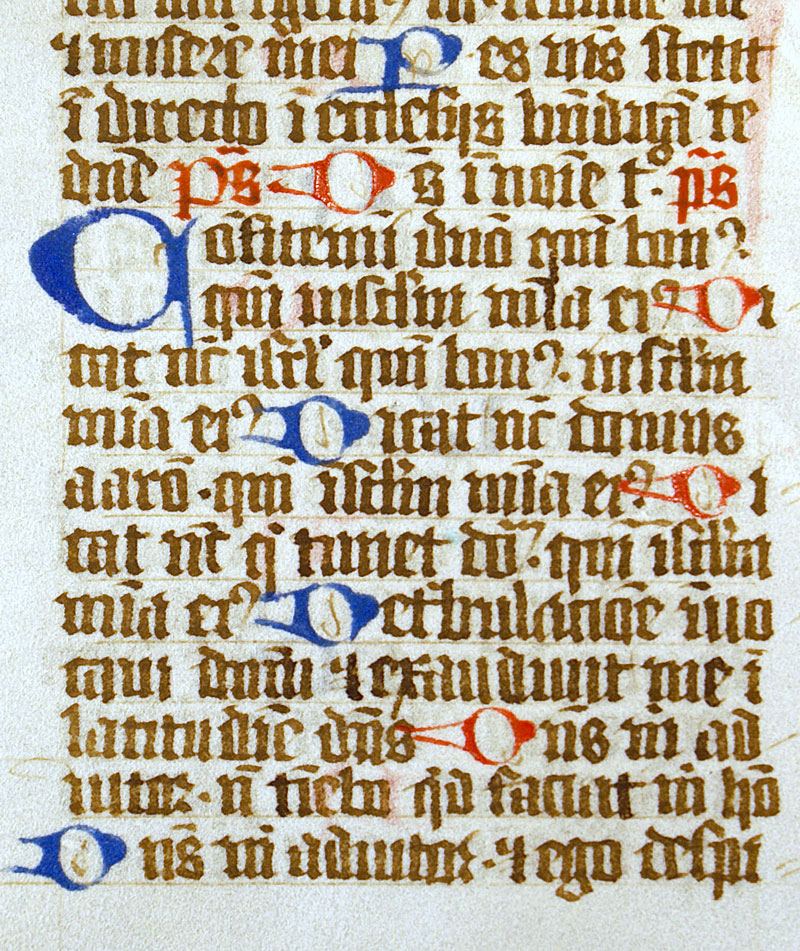 ⁊ miserē mei P es nr̄s stetit
ī directo ī eccłesijs bn̄dicā te
dn̄e ps̄ D s̄ ī noīe t° ps̄
Cōfitemī dn̄o qm̄ bonꝰ
qm̄ ī sclm̄ mīa eiꝰ D i
cat nc̄ isrł qm̄ bonꝰ . in sclm̄
mīa eiꝰ D icat nc̄ domus
aarō . qm̄ ī sclm̄ mīa eiꝰ D i
cat nc̄ q timet dm̄ . qm̄ ī sclm̄
mīa eiꝰ D e tbulacioē īuo
caui dominū ⁊ exaudiuit me ī
latitudīe dn̄s D n̄s m̄ ad
iutor . n̄ timebo qd faciat m̄ hō
D n̄s m̄ adiutor . ⁊ ego despi